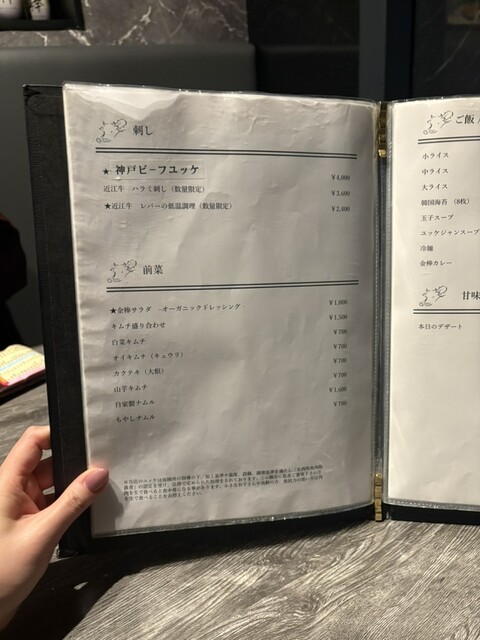 刺し
★ 神戸ビーフユッケ ¥4,000
近江牛 ハラミ刺し（数量限定） ¥3,600
★近江牛 レバーの低温調理（数量限定） ¥2,400
前菜
★金棒サラダ -オーガニックドレッシング ¥1,800
キムチ盛り合わせ ¥1,500
白菜キムチ ¥700
オイキムチ（キュウリ） ¥700
カクテキ（大根） ¥700
山芋キムチ ¥700
自家製ナムル ¥1,600
もやしナムル ¥700
ご飯 /
小ライス
中ライス
大ライス
韓国海苔 （8枚）
玉子スープ
ユッケジャンスープ
冷麺
金棒カレー
甘味
本日のデザート